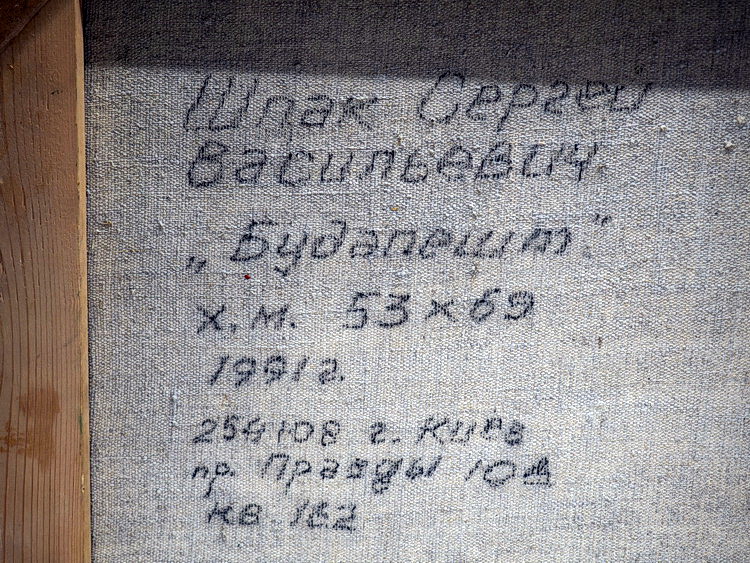 Шпак Сергей
Васильевич
„Будапешт"
х.м. 53×69
1991г.
г. Киев
пр. Правды
кв.